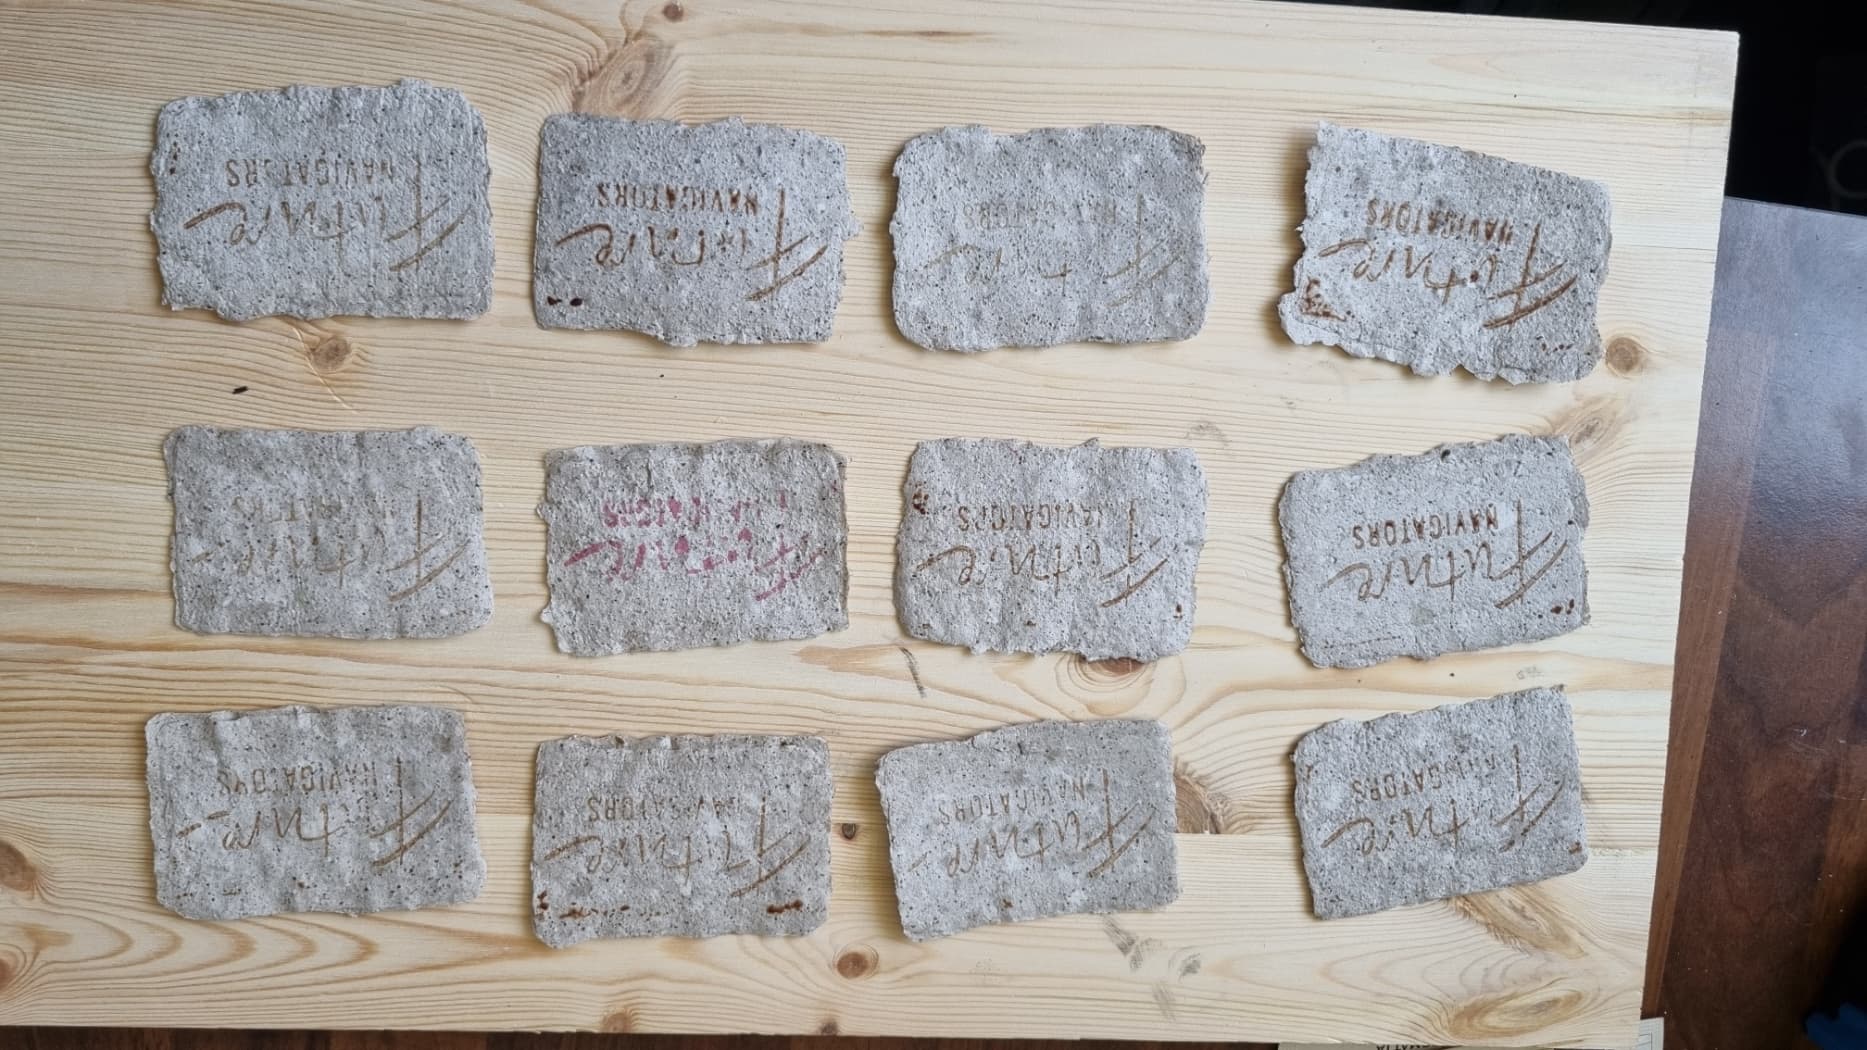 Future
NAVIGATORS
Future
NAVIGATORS
Future
NAVIGATORS
Future
NAVIGATORS
Future
NAVIGATORS
Future
NAVIGATORS
Future
NAVIGATORS
Future
NAVIGATORS
Future
NAVIGATORS
Future
NAVIGATORS
Future
NAVIGATORS
Future
NAVIGATORS